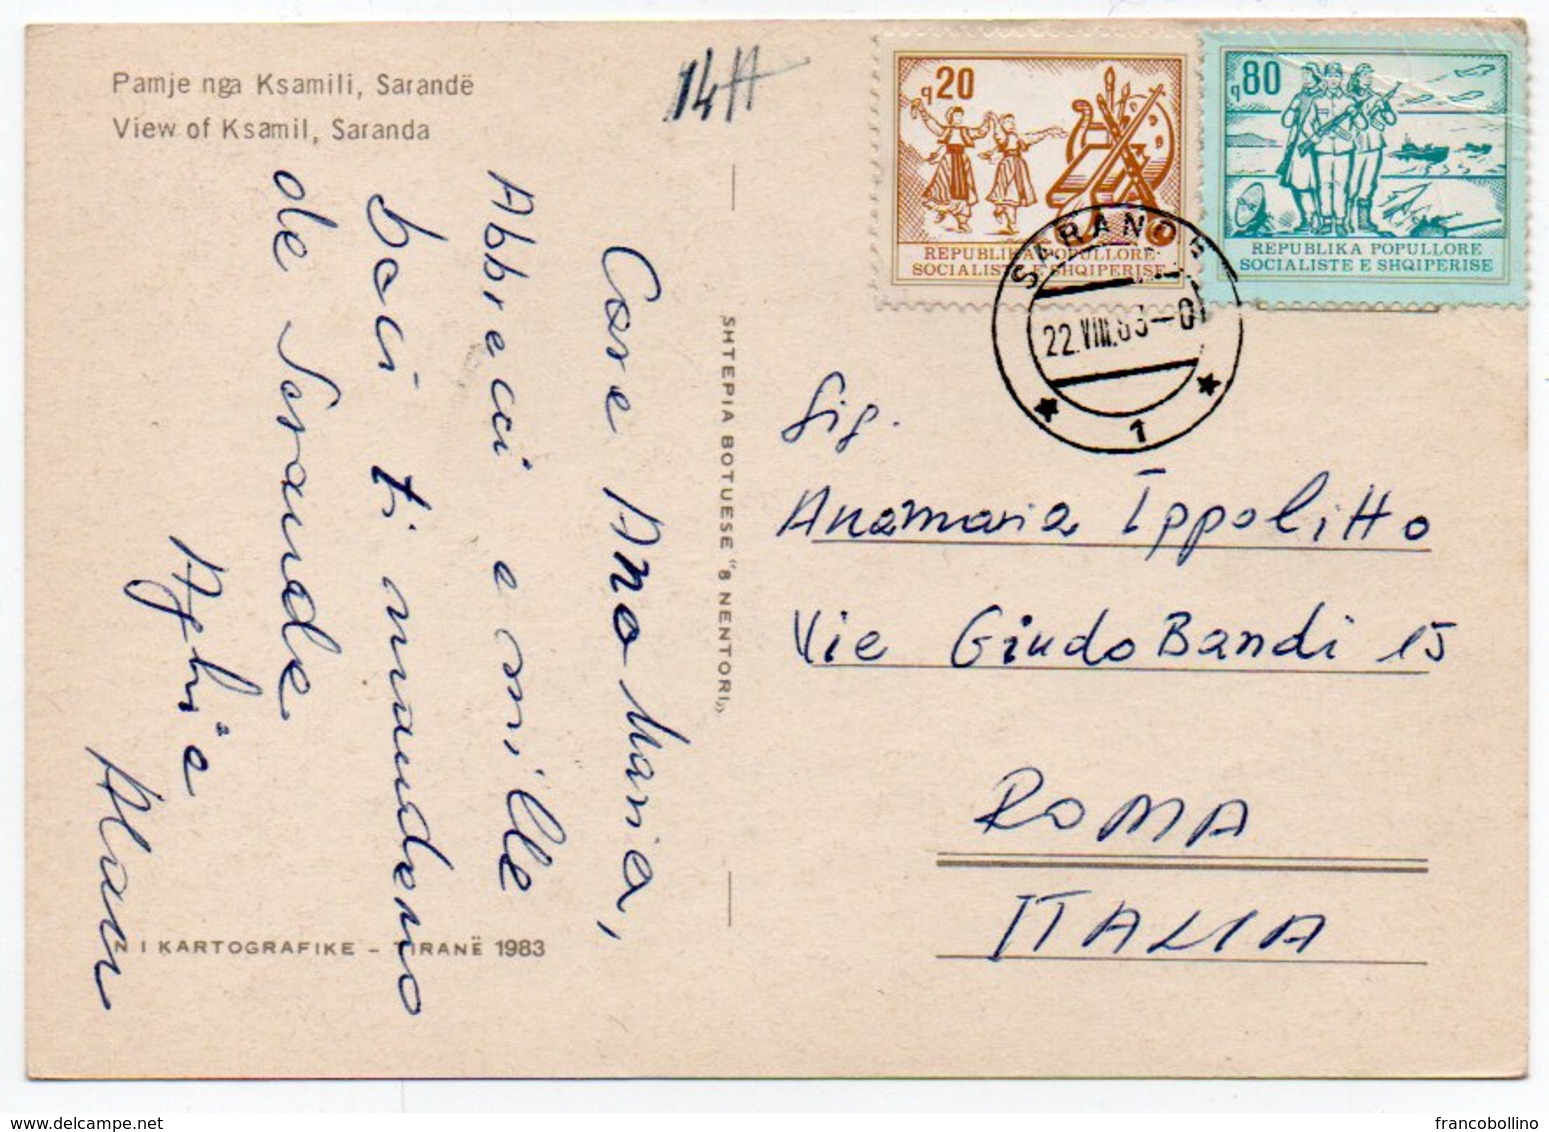 Pamje nga Ksamili, Sarandë
View of Ksamil, Saranda
14H
q20
REPUBLIKA POPULLORE
SOCIALISTE E SHQIPERISE
q80
REPUBLIKA POPULLORE
SOCIALISTE E SHQIPERISE
22.VIII.83-01
1
Cara Ana Maria,
Abbracci e mille
baci ti mandano
da Sarande
Alan
SHTEPIA BOTUESE "8 NENTORI»
Sig.
Anamaria Ippolitto
Via Giudo Bandi 15
ROMA
ITALIA
N I KARTOGRAFIKE – TIRANË 1983
francobollino